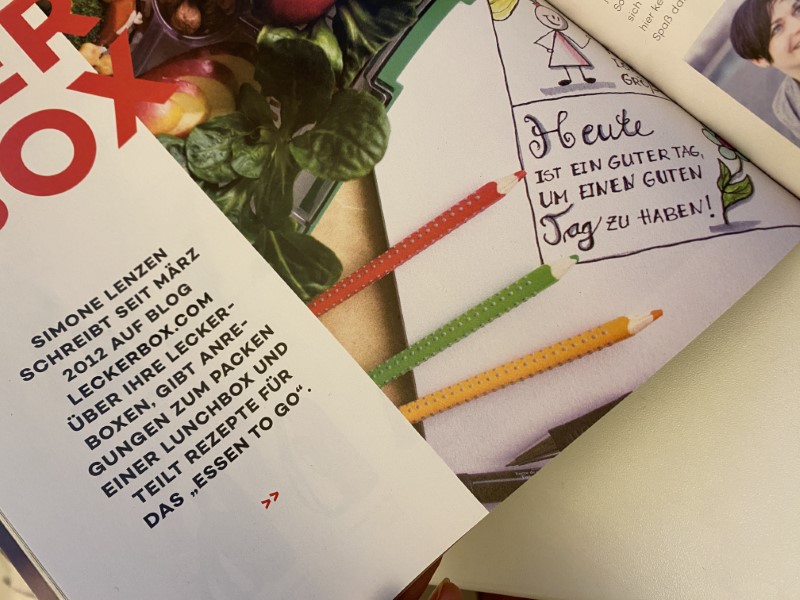 ER
BOX
SIMONE LENZEN
SCHREIBT SEIT MÄRZ
2012 AUF BLOG
LECKERBOX.COM
ÜBER IHRE LECKER-
BOXEN, GIBT ANRE-
GUNGEN ZUM PACKEN
EINER LUNCHBOX UND
TEILT REZEPTE FÜR
DAS „ESSEN TO GO“.
>>
Heute
IST EIN GUTER TAG,
UM EINEN GUTEN
Tag ZU HABEN!
sich
hier ke
Spaß da